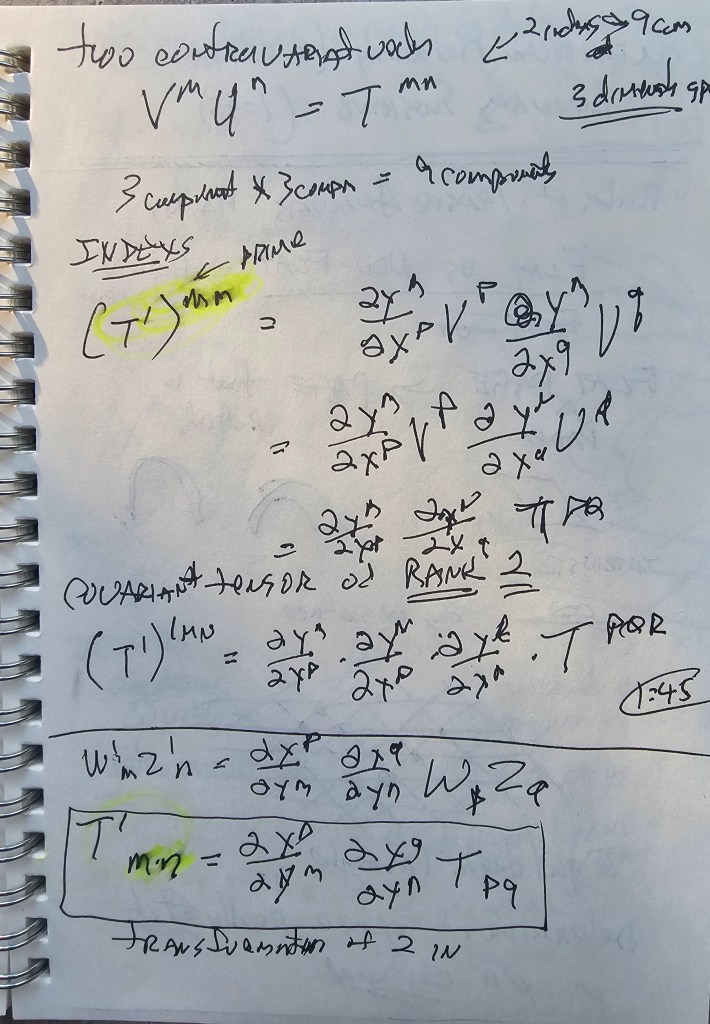 two contravariant vects ← 2 indxs → 9 com
V^m U^n = T^mn
3 dimensn sp
3 component × 3 compn = 9 components
INDEXS
PRIME
(T')^mn = ∂y^m/∂x^p V^p ∂y^n/∂x^q U^q
= ∂y^m/∂x^p V^p ∂y^n/∂x^q U^q
= ∂y^m/∂x^p ∂x^n/∂x^q T^PQ
COVARIANT TENSOR of RANK 2
(T')^LMN = ∂y^m/∂x^p · ∂y^N/∂x^p · ∂y^L/∂x^n · T^PQR
1:45
W'_m Z'_n = ∂x^p/∂y^m ∂x^q/∂y^n W_p Z_q
T'_m·n = ∂x^p/∂y^m ∂x^q/∂y^n T_pq
of 2 IN